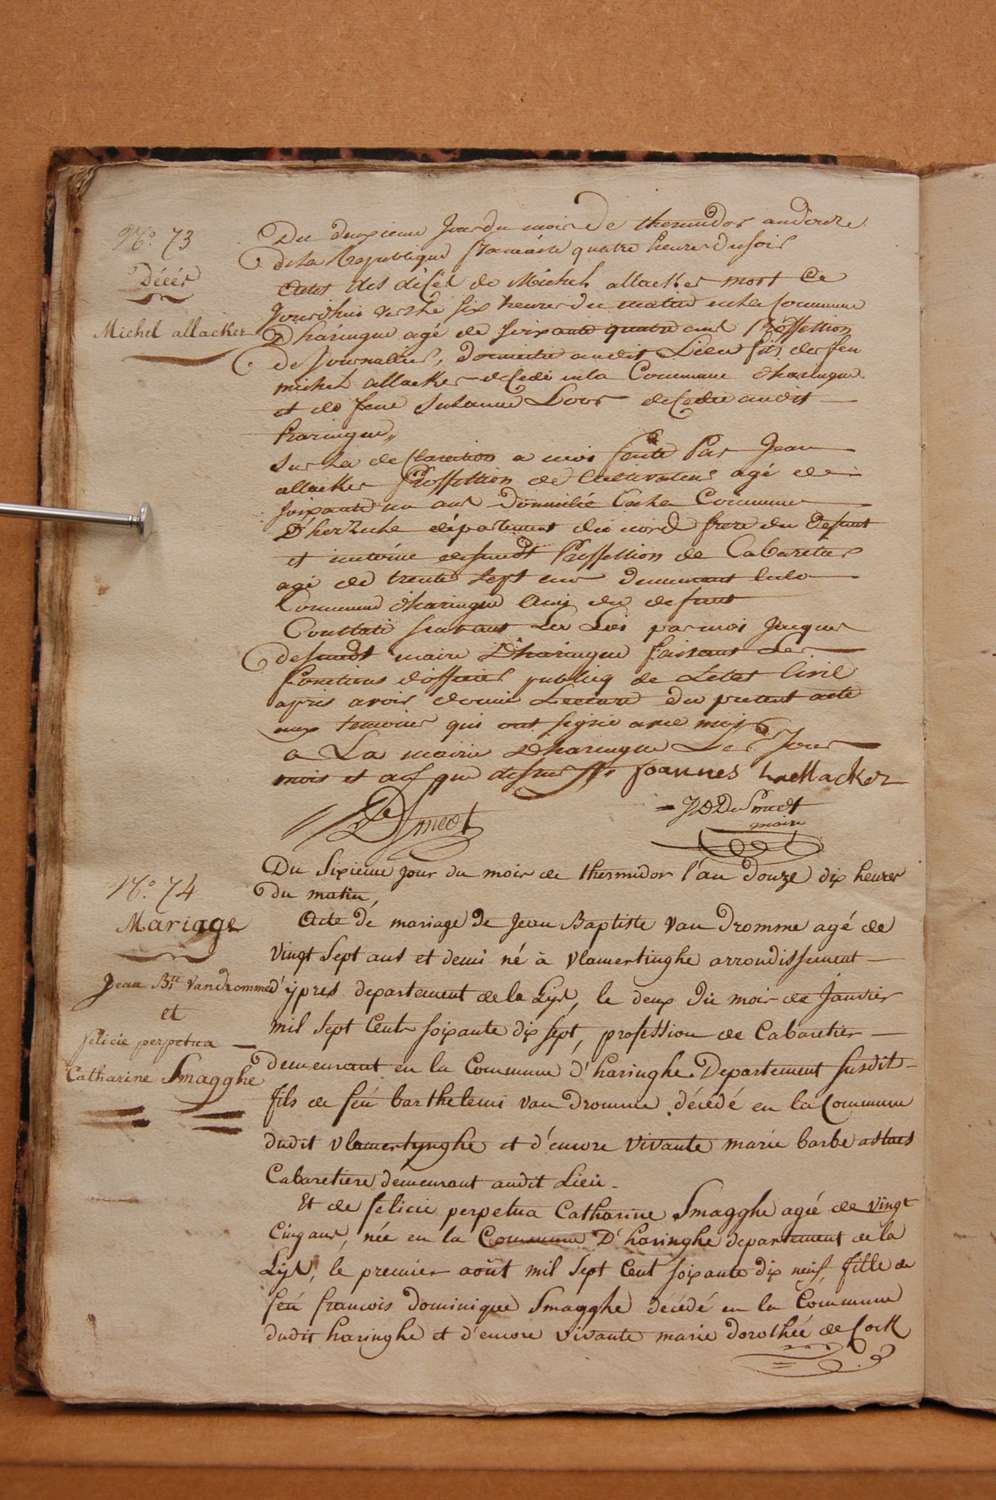 N.o 73
Décés
Michel allacker
Du deuxieme Jour du mois de thermidor an douze
de la Republique francaise quatre heures du soir
Actes des décés de Michel allacker mort ce
Jourdhui vers les six heures du matin en la Commune
Dharingue agé de soixante quatre ans Proffession
de Journallier, domicilié audit Lieu fils de feu
michel allacker décédé en la Commune dharingue
et de feue Susanne decedée audit
haringue,,
Sur la declaration a moi faite Par Jean
allacker Proffession de Cultivateur agé de
soixante un ans domicilié En la Commune
D'herzeele département du nord frere du defunt
et antoine desmedt Proffession de Cabaretier
agé de trente sept ans demeurant en la
Commune dharingue ami du defunt
Constaté suivant La Loi par moi Jacques
desmedt maire Dharingue faisant Les
fonctions d'officier publiq de Letat Civil
apres avoir donné Lecture du present acte
aux temoins qui ont signé avec moy
a La mairie Dharingue Les Jour
mois et an que dessus Joannes hallacker
DeSmedt
J D DeSmedt
maire
N.o 74
Mariage
Jean B.te Vandromme
et
felicie perpetua
Catharine Smagghe
Du Sixieme jour du mois de thermidor l'an douze dix heures
du matin,
Acte de mariage de Jean Baptiste Van Dromme agé de
vingt Sept ans et demi né à Vlamertinghe arrondissement
d'ypres departement de la Lys, le deux du mois de Janvier
mil sept Cent soixante dix sept, profession de Cabaretier
demeurant en la Commune d'haringhe Departement susdit
fils de feu barthelemi van Dromme, décédé en la Commune
dudit Vlamertynghe et d'encore vivante marie barbe
Cabaretiere demeurant audit Lieu.
Et de felicie perpetua Catharine Smagghe agée de vingt
Cinq ans, née en la Commune D'haringhe departement de la
Lys, le premier août mil sept Cent soixante dix neuf, fille de
feu francois Dominique Smagghe décédé en la Commune
dudit haringhe et d'encore vivante marie dorothée de Cock